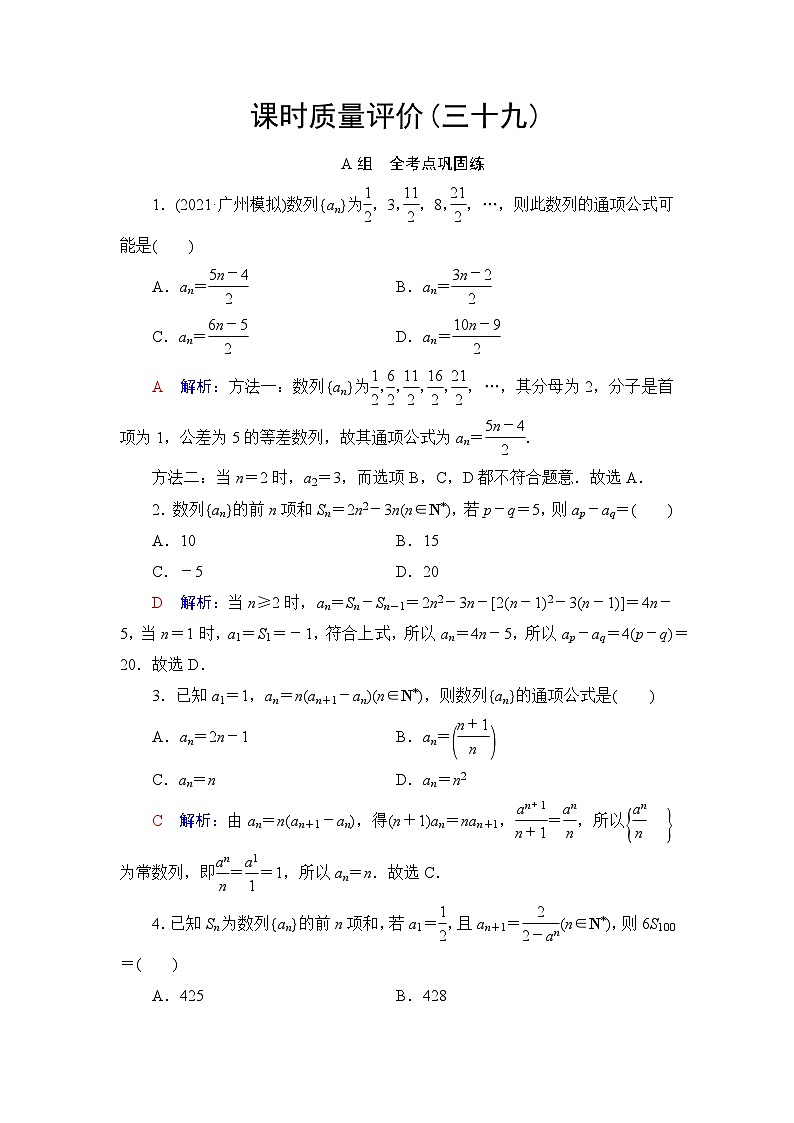 课时质量评价(三十九)
A组　全考点巩固练
1．(2021·广州模拟)数列{aₙ}为1/2，3，11/2，8，21/2，…，则此数列的通项公式可
能是(　　)
A．aₙ＝(5n－4)/2　B．aₙ＝(3n－2)/2
C．aₙ＝(6n－5)/2　D．aₙ＝(10n－9)/2
A　解析：方法一：数列{aₙ}为1/2，6/2，11/2，16/2，21/2，…，其分母为2，分子是首
项为1，公差为5的等差数列，故其通项公式为aₙ＝(5n－4)/2.
方法二：当n＝2时，a₂＝3，而选项B，C，D都不符合题意．故选A．
2．数列{aₙ}的前n项和Sₙ＝2n²－3n(n∈N*)，若p－q＝5，则aₚ－a_q＝(　　)
A．10　B．15
C．－5　D．20
D　解析：当n≥2时，aₙ＝Sₙ－Sₙ₋₁＝2n²－3n－[2(n－1)²－3(n－1)]＝4n－
5，当n＝1时，a₁＝S₁＝－1，符合上式，所以aₙ＝4n－5，所以aₚ－a_q＝4(p－q)＝
20．故选D．
3．已知a₁＝1，aₙ＝n(aₙ₊₁－aₙ)(n∈N*)，则数列{aₙ}的通项公式是(　　)
A．aₙ＝2n－1　B．aₙ＝((n＋1)/n)
C．aₙ＝n　D．aₙ＝n²
C　解析：由aₙ＝n(aₙ₊₁－aₙ)，得(n＋1)aₙ＝naₙ₊₁，aⁿ⁺¹/(n＋1)＝aⁿ/n，所以{aⁿ/n}
为常数列，即aⁿ/n＝a¹/1＝1，所以aₙ＝n．故选C．
4．已知Sₙ为数列{aₙ}的前n项和，若a₁＝1/2，且aₙ₊₁＝2/(2－aⁿ)(n∈N*)，则6S₁₀₀
＝(　　)
A．425　B．428